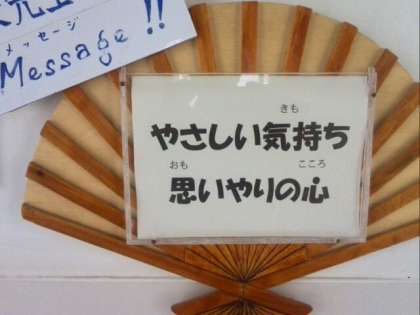 メッセージ
Message!!
やさしい気持ち
きも
思いやりの心
おも こころ